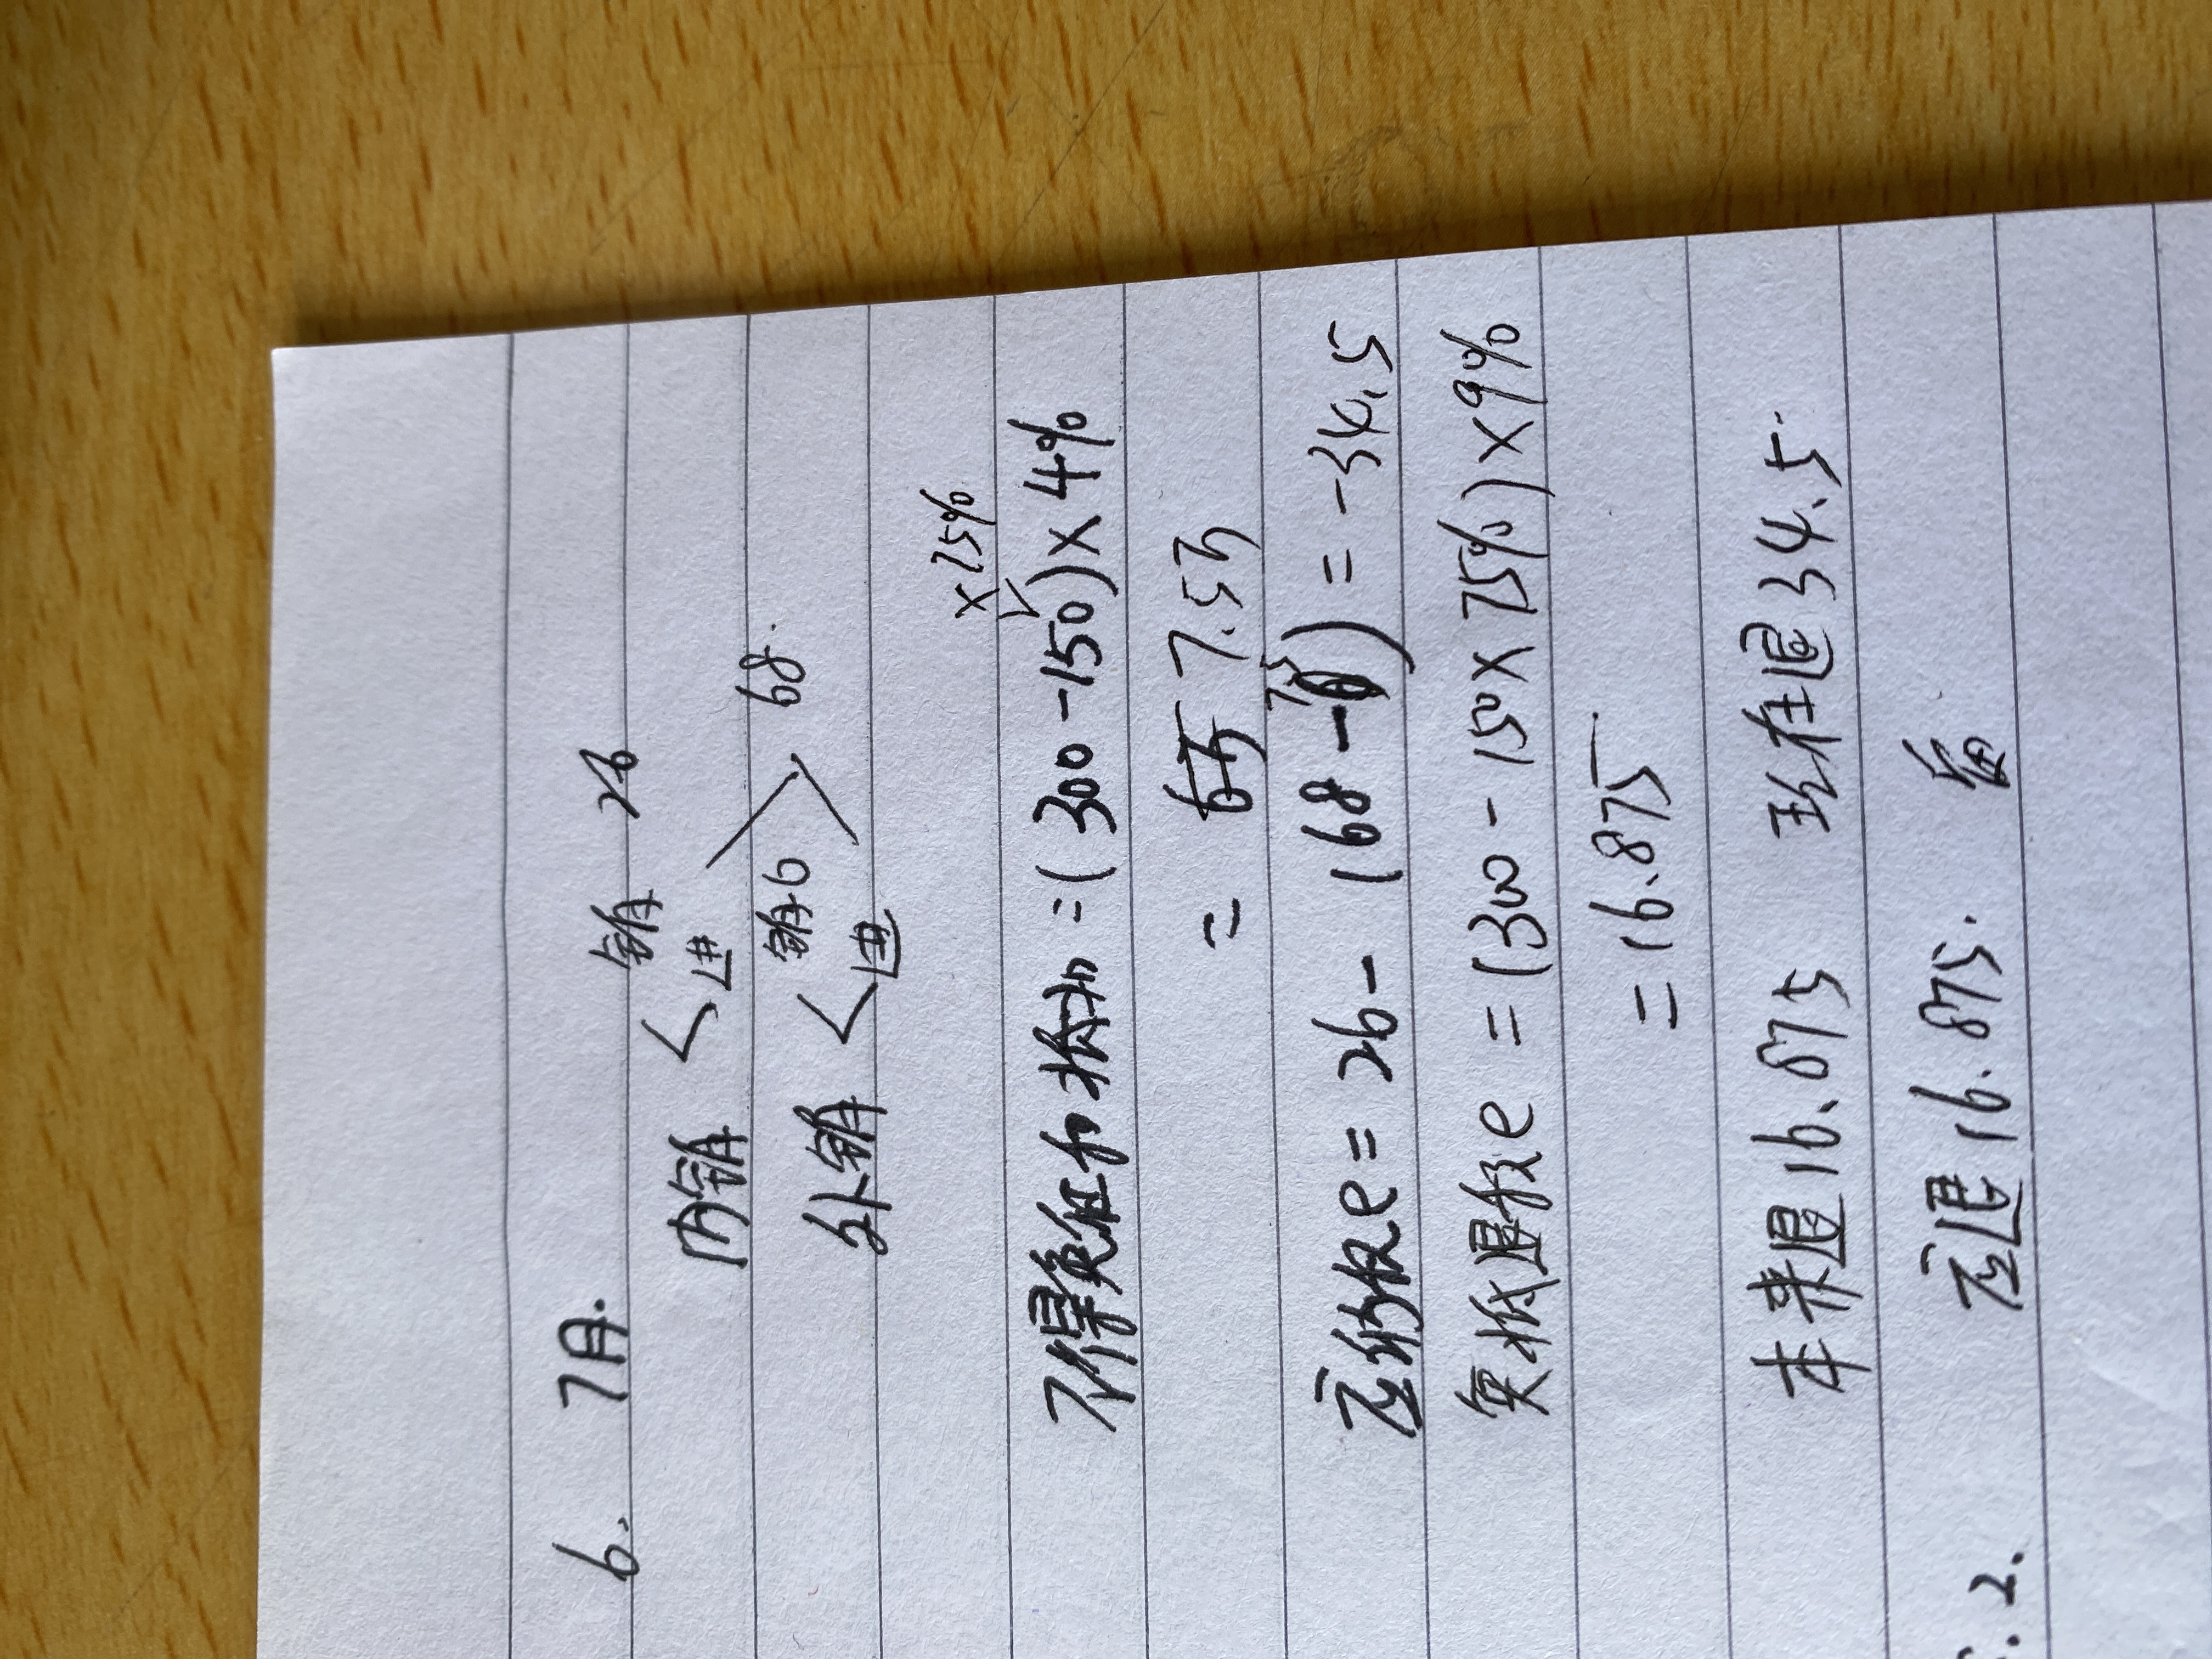 6. 7月.
销 26
内销 < 进
销0 68.
外销 < 进
×75%
不得免征和抵扣 =(300-150)×4%
= 6万 7.5万
7.5
应纳税e = 26-(68-6) = -34.5
免抵退税e =(300-150×75%)×9%
=16.875
本来退16.875 现在退34.5.
2. 应退16.875. 留